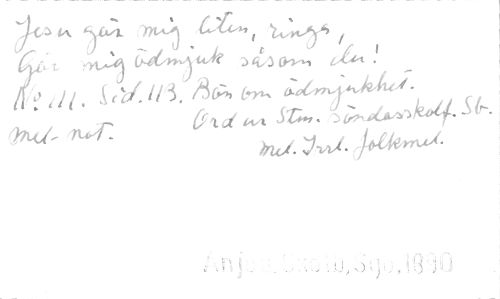 Jesu gör mig liten, ringa,
Gör mig ödmjuk såsom du!
No 111. Sid. 113. Bön om ödmjukhet.
Ord ur Stm. söndagsskolf. Sb.
mel. not.
mel. Irl. folkmel.
1890